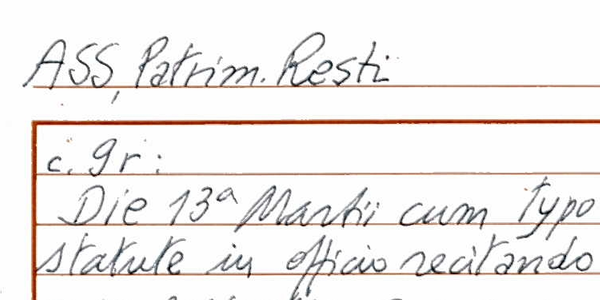 ASS, Patrim. Resti
c. gr:
Die 13ª Martii cum typo
statute in officio recitando